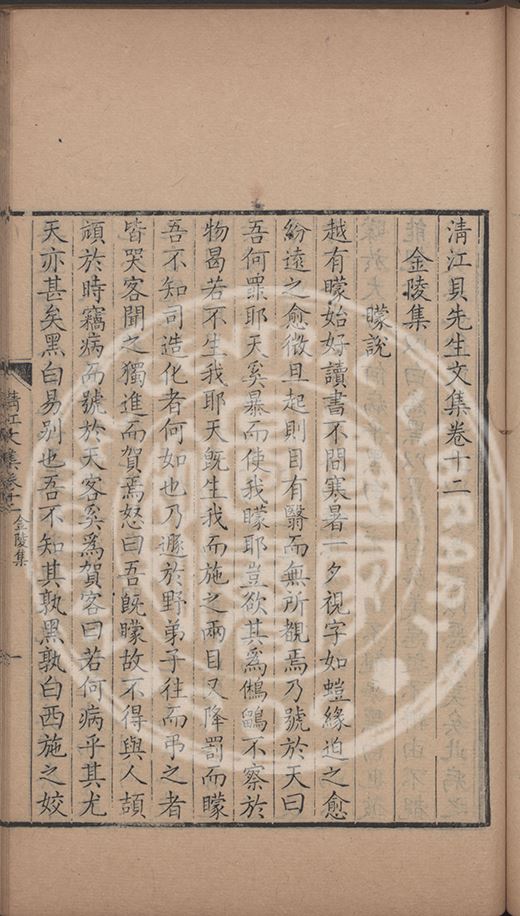 清江貝先生文集卷十二
金陵集
矇說
越有矇始好讀書不間寒暑一夕視字如螘緣迫之愈
紛遠之愈微旦起則目有翳而無所覩焉乃號於天曰
吾何罪耶天奚暴而使我矇耶豈欲其爲鵂鶹不察於
物曷若不生我耶天旣生我而施之兩目又降罰而矇
吾不知司造化者何如也乃遯於野弟子往而弔之者
皆哭客聞之獨進而賀焉怒曰吾旣矇故不得與人頡
頏於時竊病而號於天客奚爲賀客曰若何病乎其尤
天亦甚矣黑白易別也吾不知其孰黑孰白西施之姣
清江文集卷十二 金陵集 一